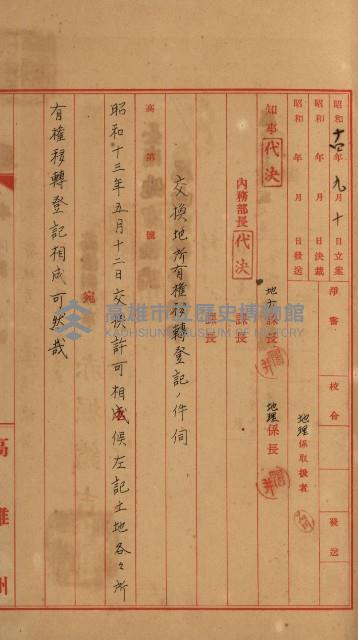 昭和十四年九月十日立案
昭和 年 月 日決裁
昭和 年 月 日發送
淨書
校合
發送
地理係取扱者
知事 代決
內務部長 代決
地方課長
地理係長
課長
課長
交換地所有權移轉登記ノ件伺
高 第 號
宛
昭和十三年五月十二日交換許可相成候左記土地各々所
有權移轉登記相成可然哉
高雄州
高雄市立歷史博物館
KAOHSIUNG MUSEUM OF HISTORY